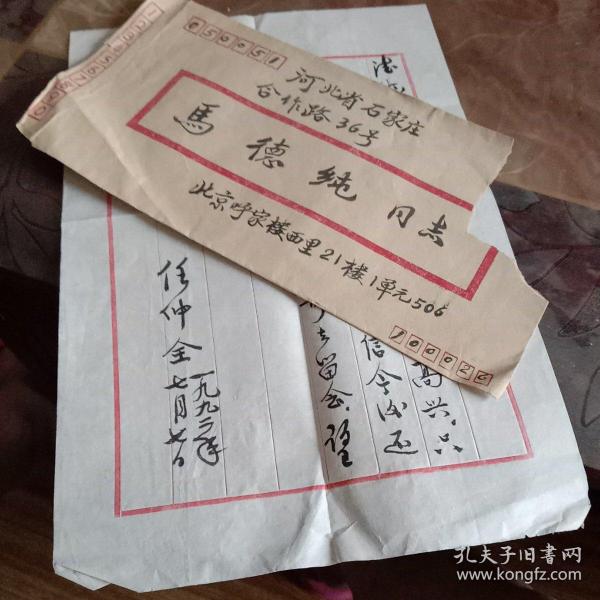 050051
河北省石家庄
合作路36号
馬德纯 同志
北京呼家楼西里21楼1单元506
100026
高兴，只
信今收还
留念，望
任仲全
一九九二年
七月七日
孔夫子旧书网
www.kongfz.com